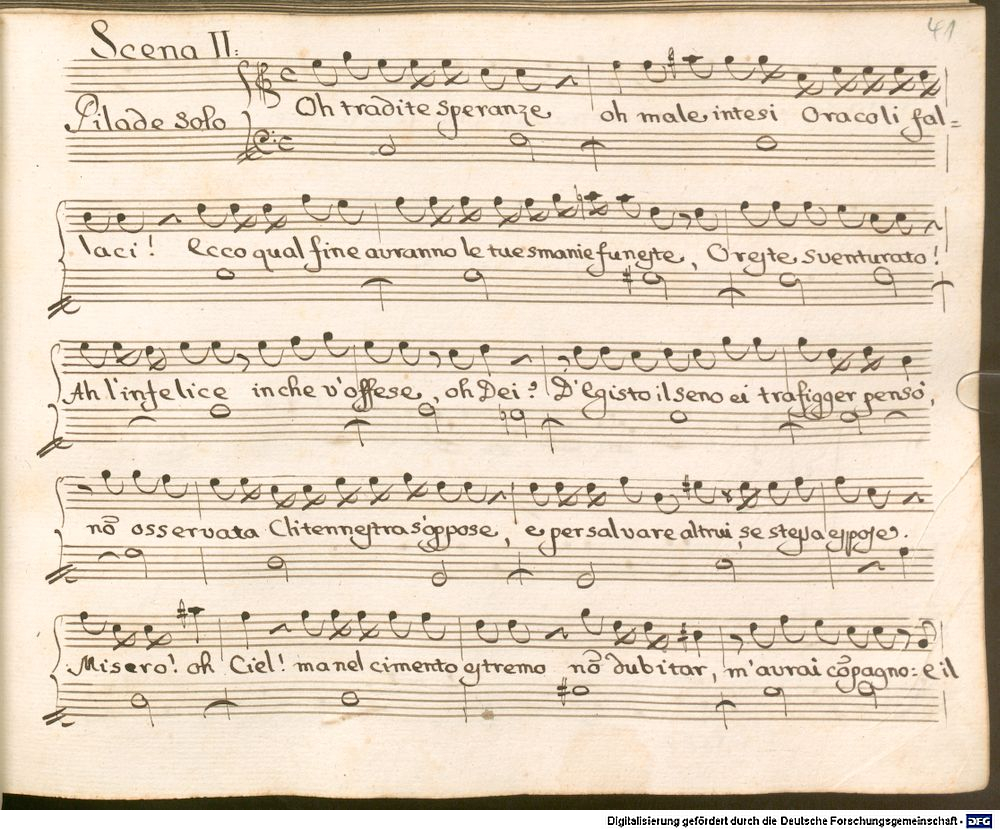 41
Scena II:
Pilade solo
Oh tradite speranze oh male intesi Oracoli fal=
laci! Ecco qual fine avranno le tue smanie funeste, Oreste sventurato!
Ah l'infelice in che v'offese, oh Dei? D'Egisto il seno ei trafigger pensò,
nō osservata Clitennestra s'oppose, e per salvare altrui, se stessa espose.
Misero! oh Ciel! ma nel cimento estremo nō dubitar, m'avrai cōpagno: e il
Digitalisierung gefördert durch die Deutsche Forschungsgemeinschaft - DFG